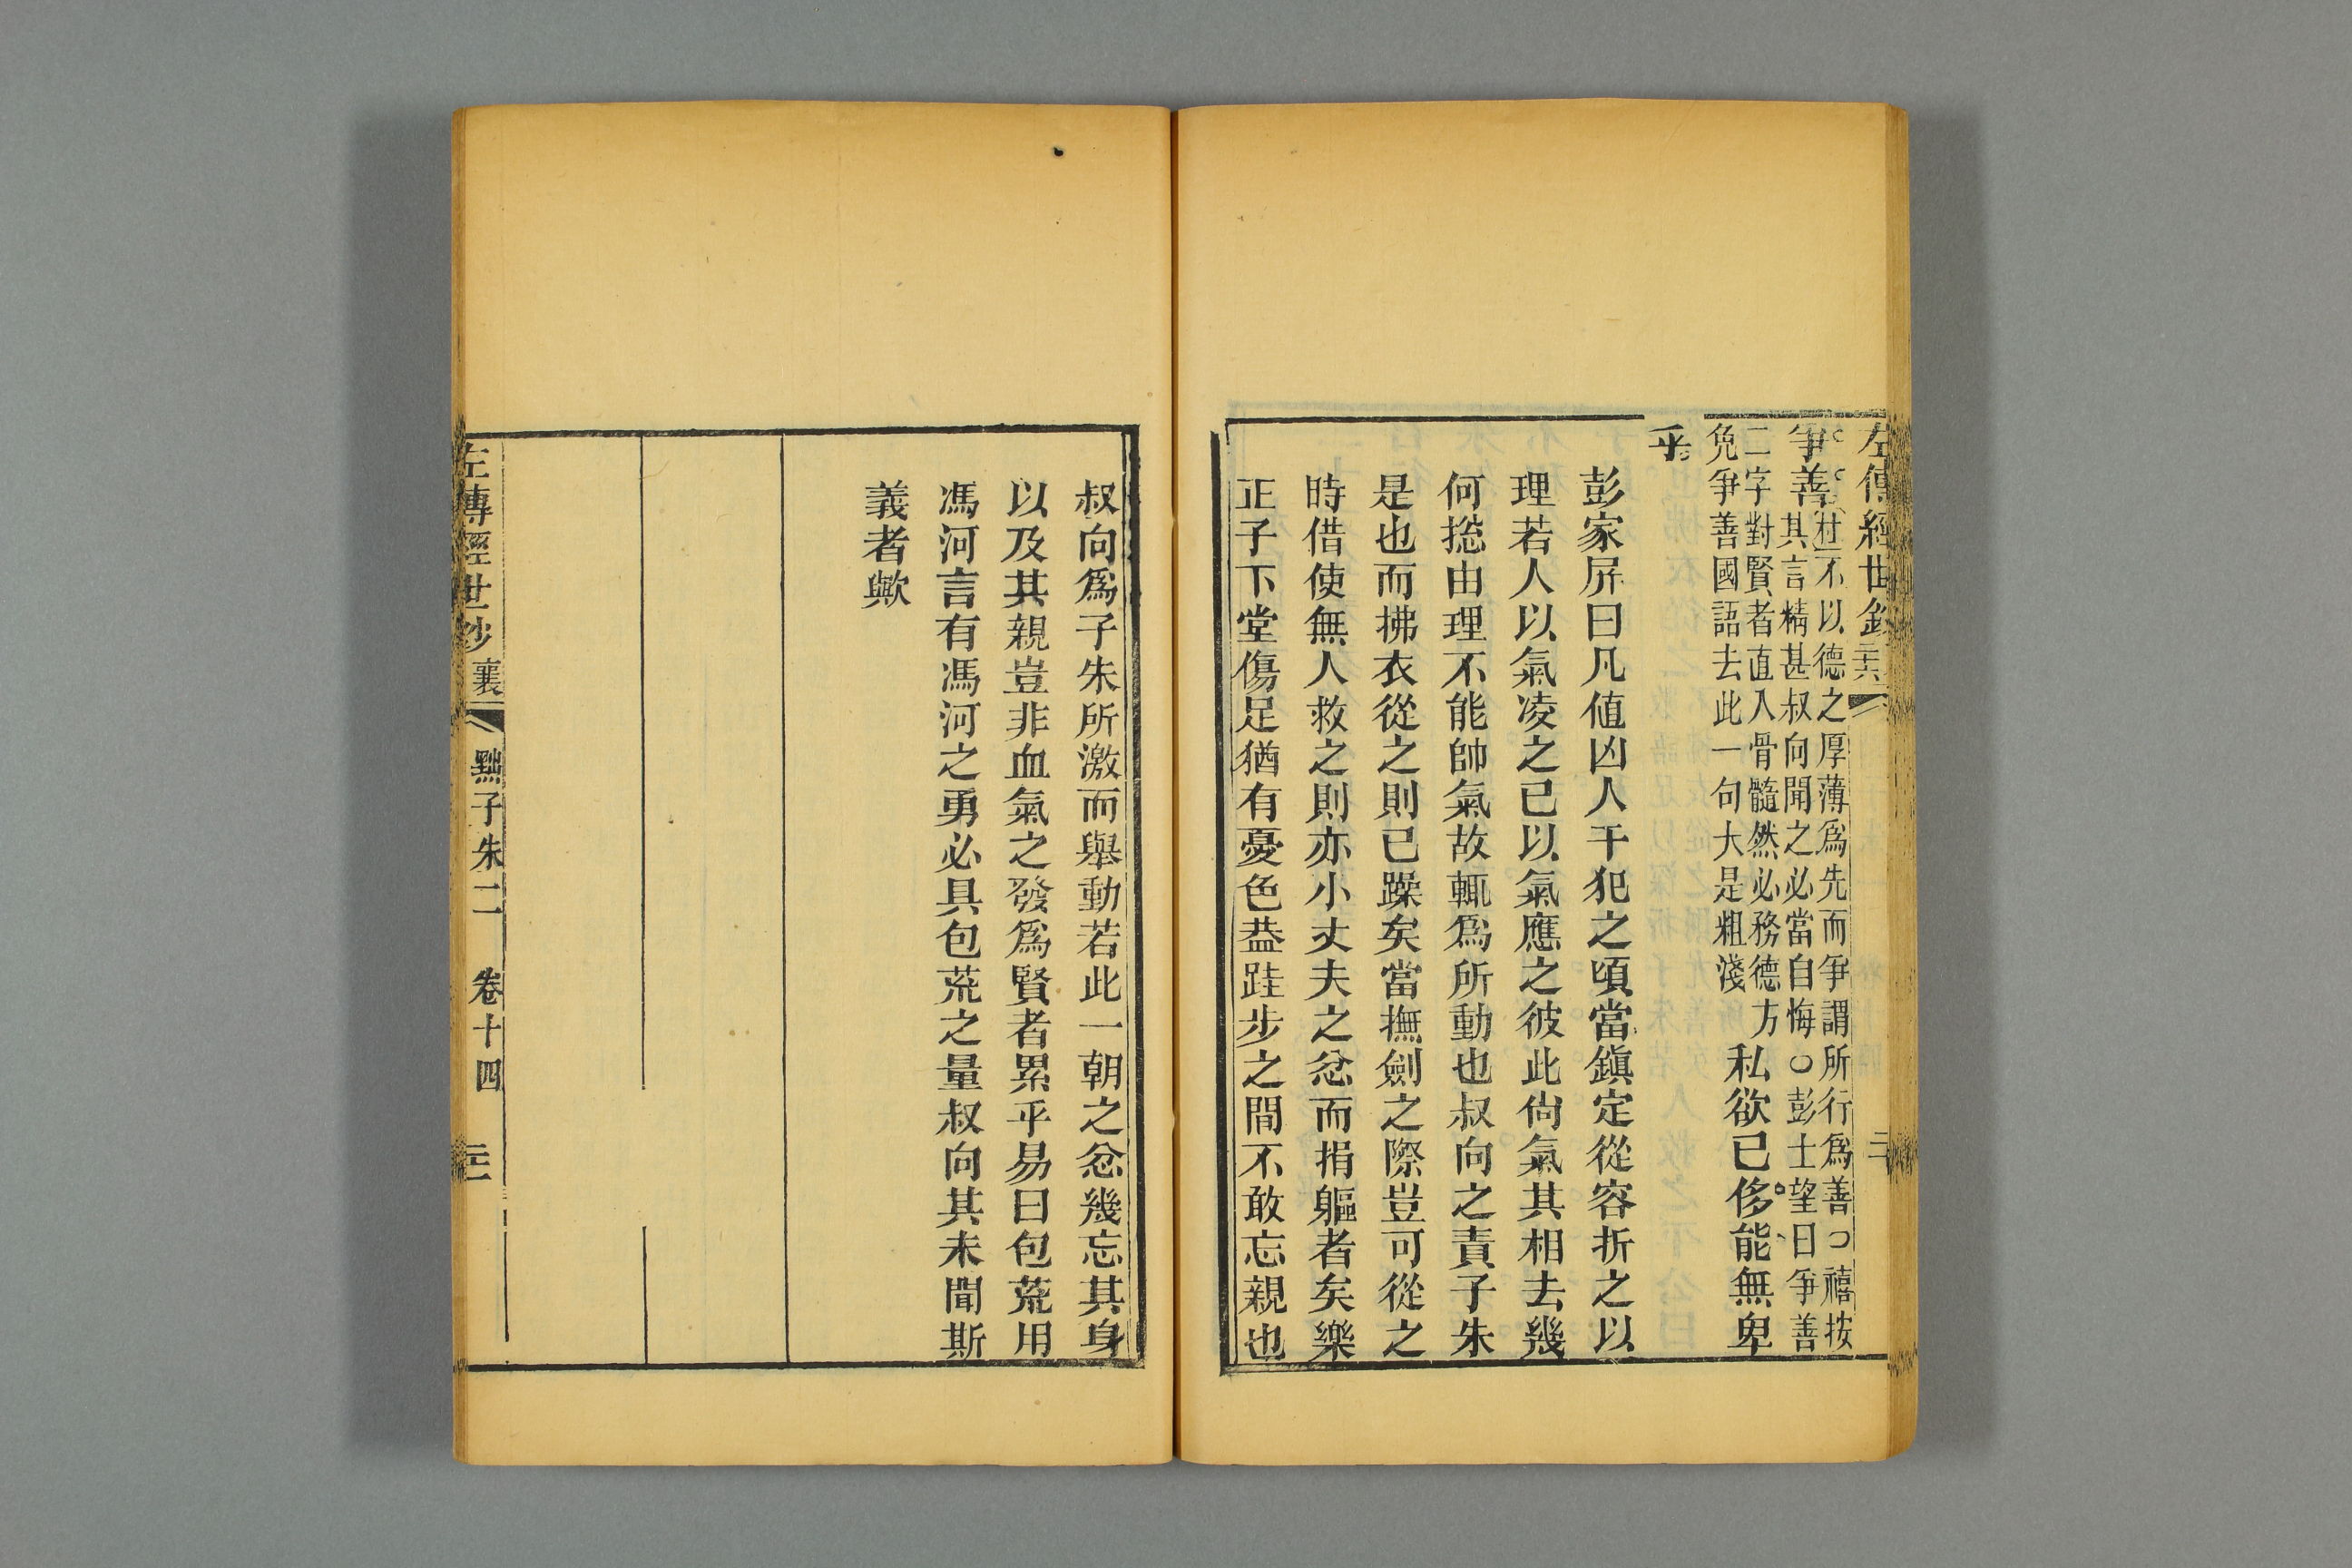 左傳經世鈔
二
爭善杜不以德之厚薄爲先而爭謂所行爲善禧按
其言精甚叔向聞之必當自悔○彭士望曰爭善
二字對賢者直入骨髓然必務德方
免爭善國語去此一句大是粗淺
私欲已侈能無卑
乎
彭家屏曰凡値凶人干犯之頃當鎭定從容折之以
理若人以氣凌之已以氣應之彼此尙氣其相去幾
何揔由理不能帥氣故輒爲所動也叔向之責子朱
是也而拂衣從之則已躁矣當撫劍之際豈可從之
時借使無人救之則亦小丈夫之忿而捐軀者矣樂
正子下堂傷足猶有憂色葢跬步之間不敢忘親也
叔向爲子朱所激而舉動若此一朝之忿幾忘其身
以及其親豈非血氣之發爲賢者累乎易曰包荒用
馮河言有馮河之勇必具包荒之量叔向其未聞斯
義者歟
左傳經世鈔 襄 黜子朱二 卷十四